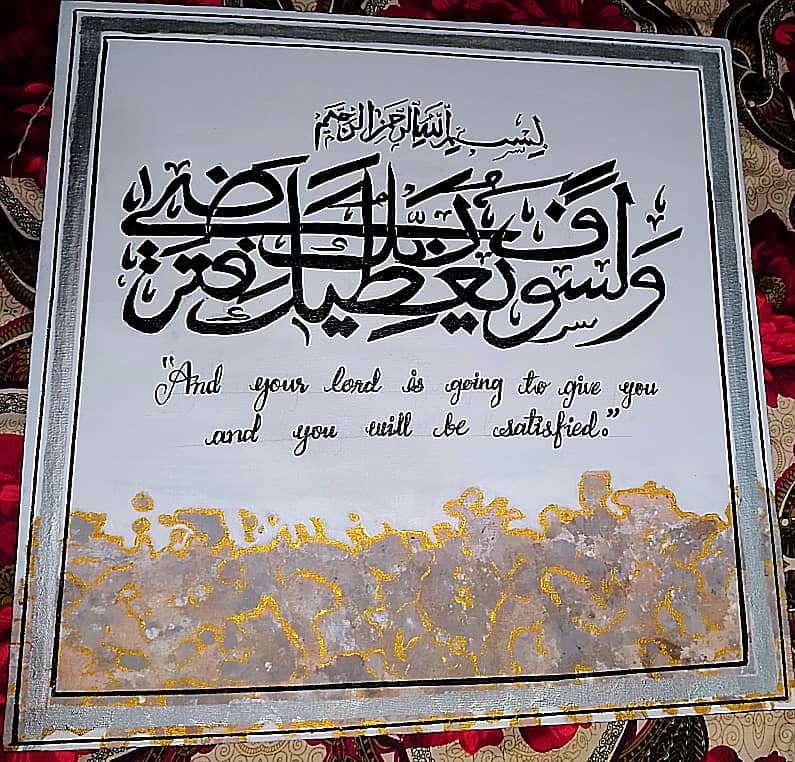 بسم الله الرحمن الرحيم
ولسوف يعطيك ربك فترضى
"And your lord is going to give you
and you will be satisfied."